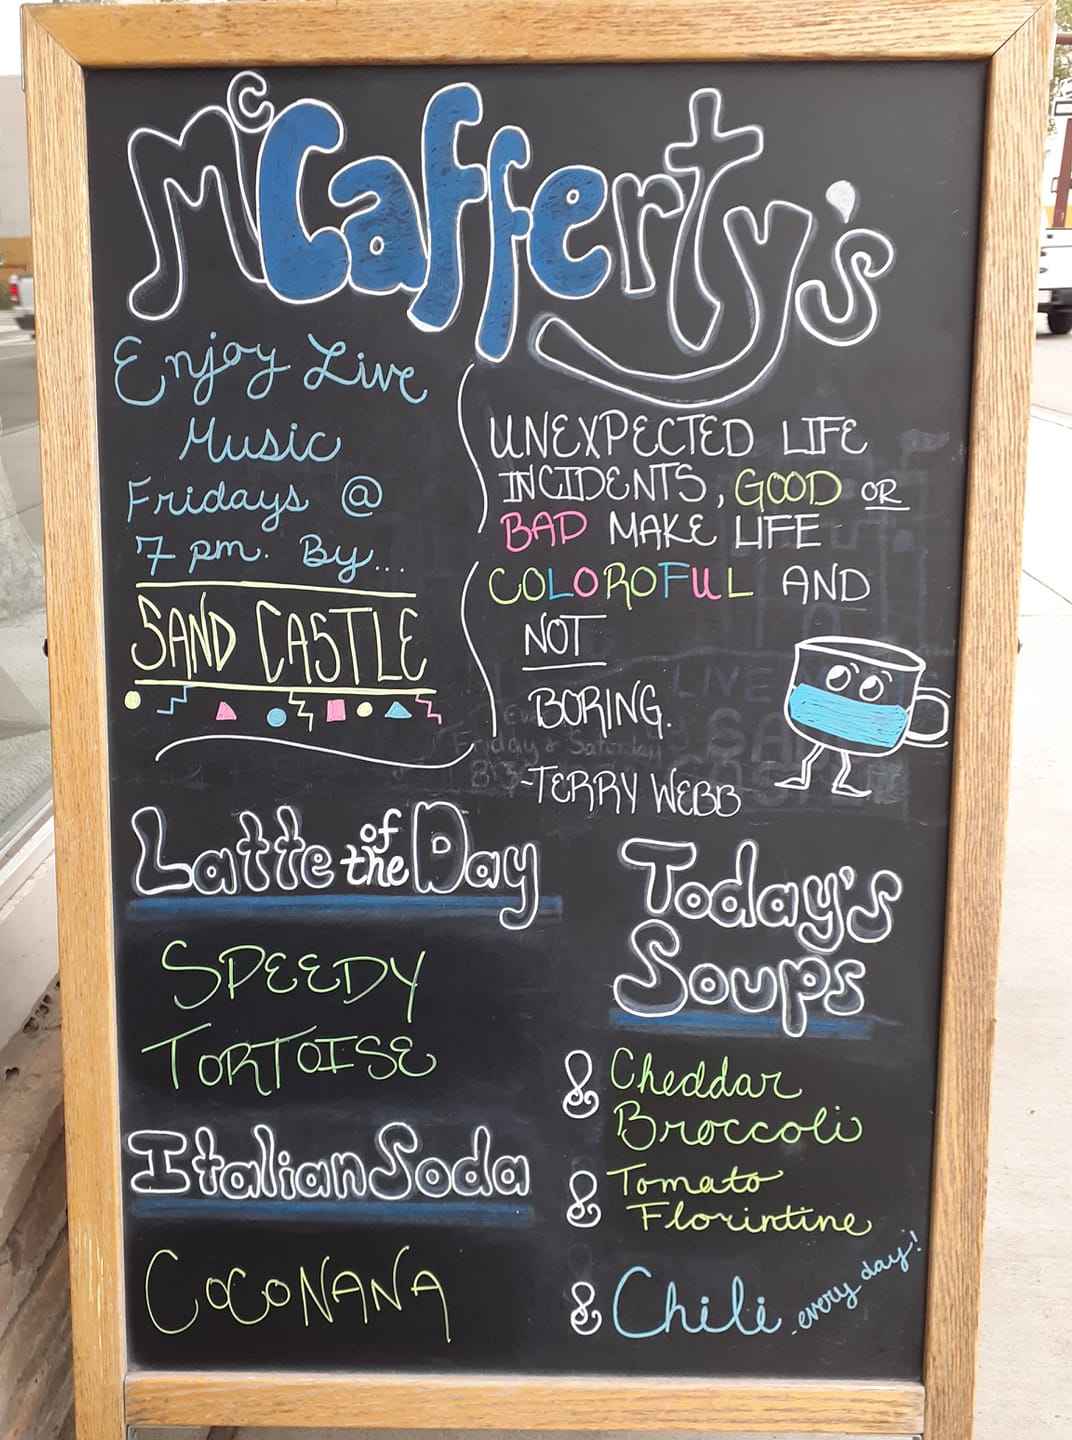 McCafferty's
Enjoy Live
Music
Fridays @
7 pm. By...
SAND CASTLE
UNEXPECTED LIFE
INCIDENTS, GOOD OR
BAD MAKE LIFE
COLOROFUL AND
NOT
BORING.
-TERRY WEBB
Latte of the Day
SPEEDY
TORTOISE
Italian Soda
COCONANA
Today's
Soups
Cheddar
Broccoli
Tomato
Florintine
Chili - every day!